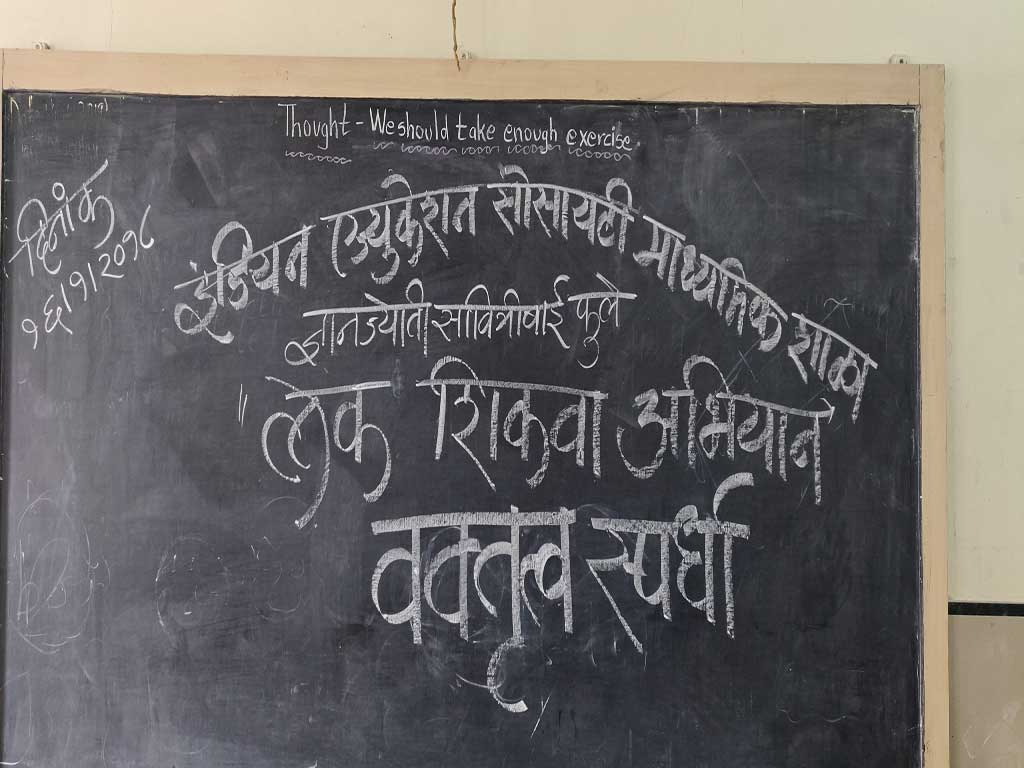 Thought - We should take enough exercise.
दिनांक
१६/१/२०१८
इंडियन एज्युकेशन सोसायटी माध्यमिक शाळा
ज्ञानज्योती सावित्रीबाई फुले
"लेक शिकवा अभियान"
वक्तृत्व स्पर्धा